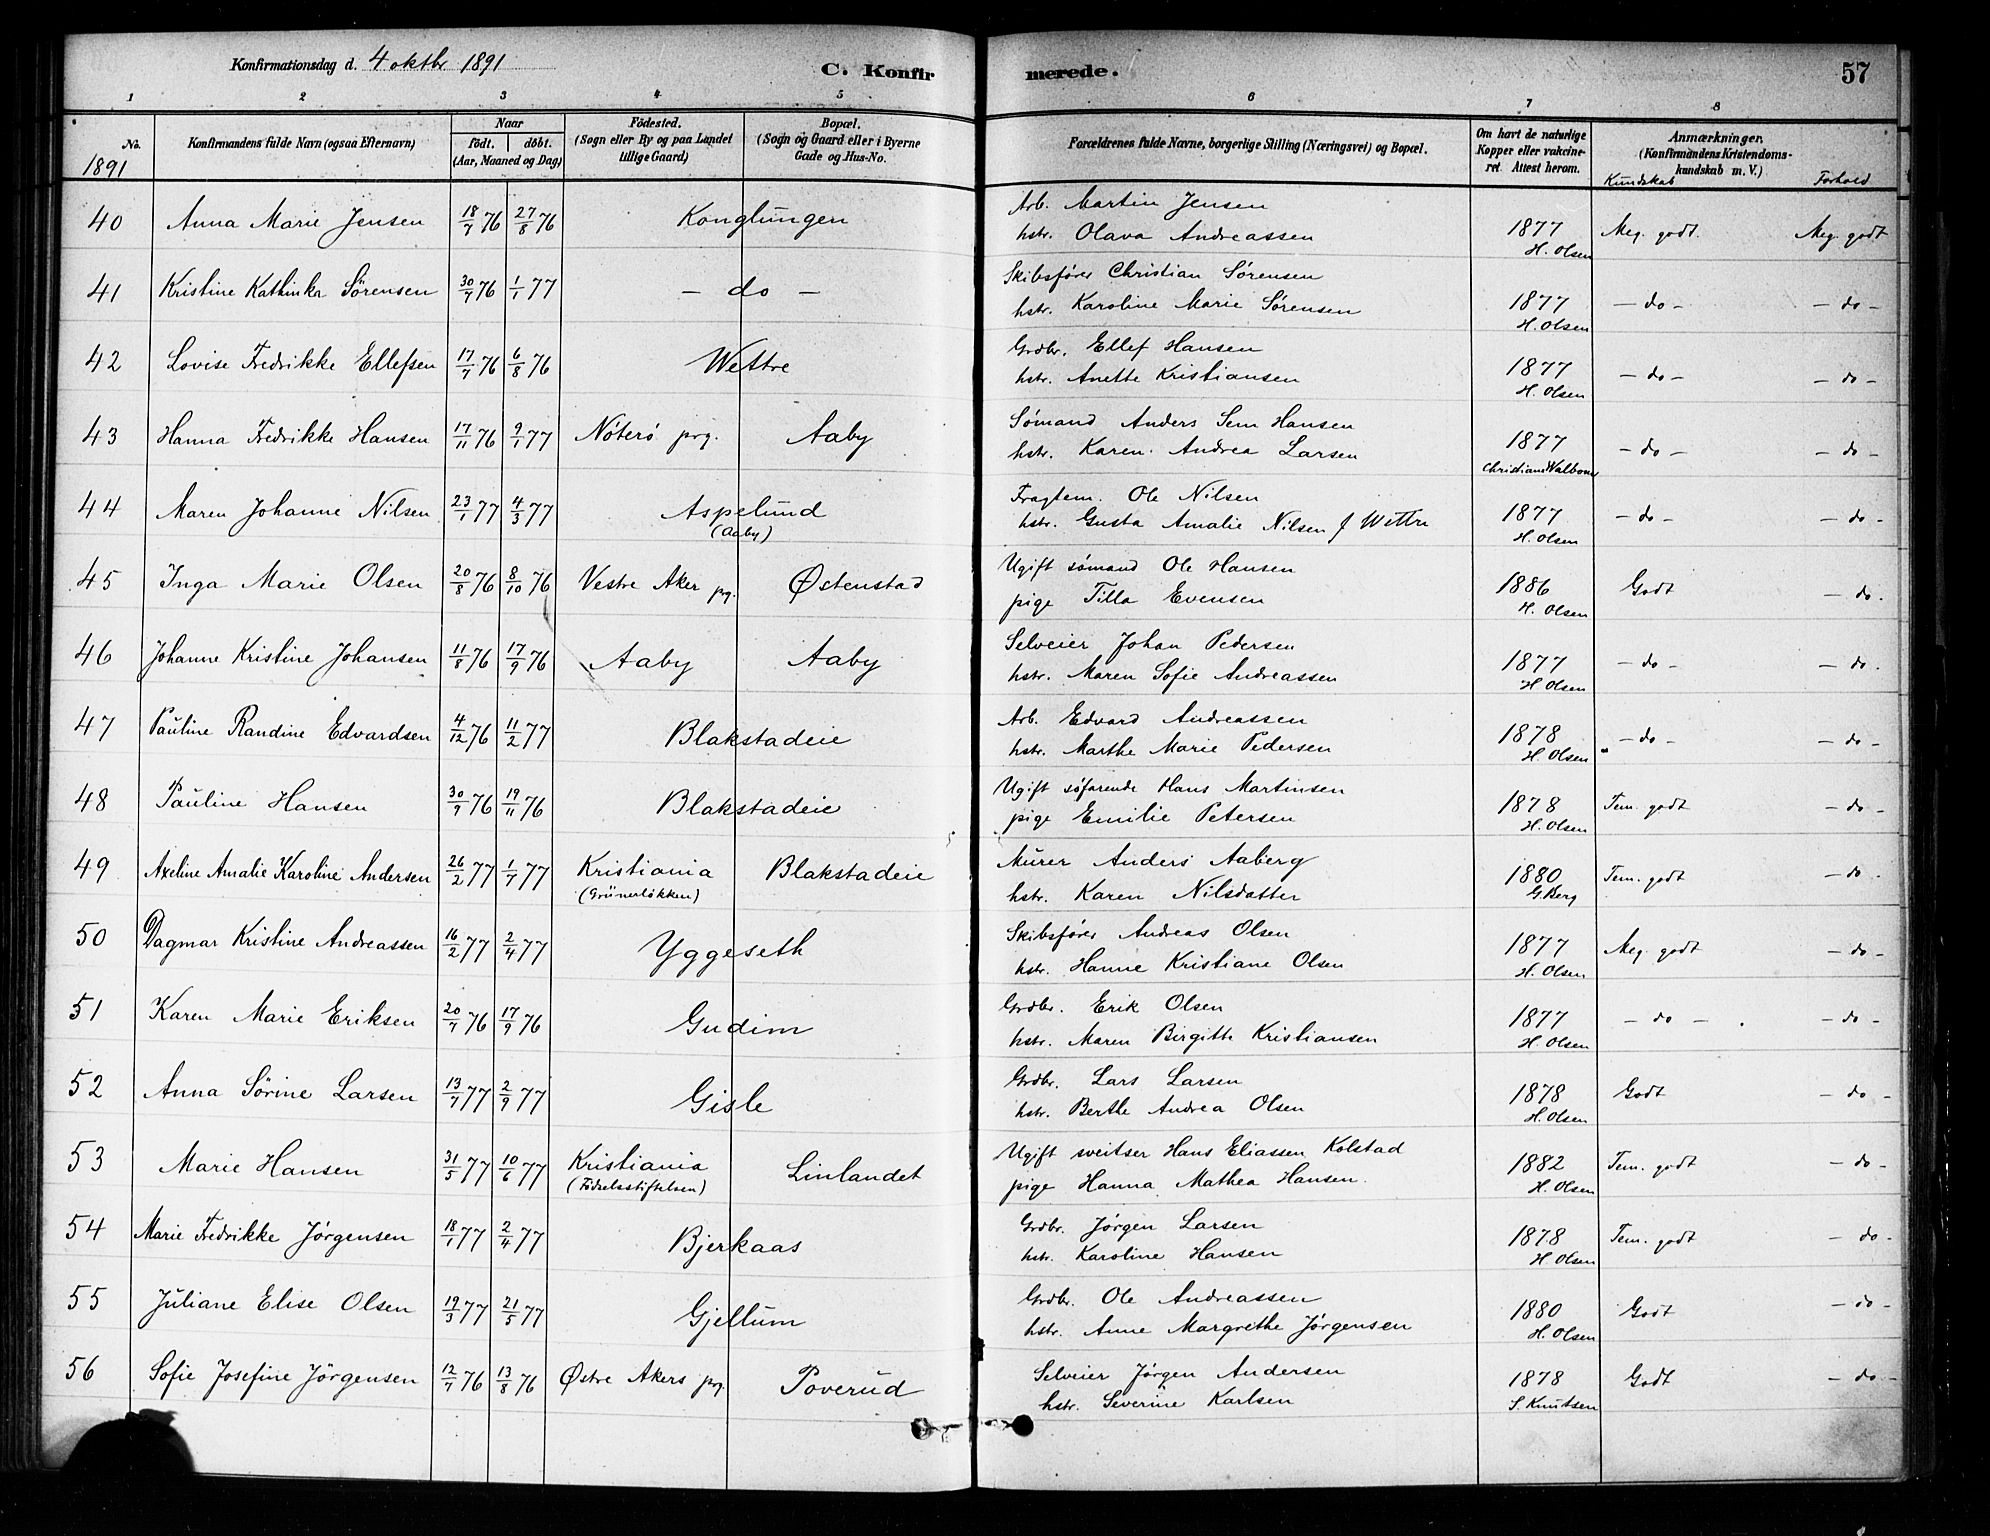 Konfirmationsdag d. 4 oktbr 1891
C. Konfirmerede.
57
1 2 3 4 5 6 7 8
No. Konfirmandens fulde Navn (ogsaa Efternavn) Naar født. døbt. (Aar, Maaned og Dag) Fødested. (Sogn eller By og paa Landet tillige Gaard) Bopæl. (Sogn og Gaard eller i Byerne Gade og Hus-No. Forældrenes fulde Navne, borgerlige Stilling (Næringsvei) og Bopæl. Om havt de naturlige Kopper eller vakcineret. Attest herom. Anmærkninger. (Konfirmandens Kristendomskundskab m. V.)
1891 Kundskab Forhold
40 Anna Marie Jensen 18/7 76 27/8 76 Konglungen Arb. Martin Jensen 1877 Meg. godt. Meg. godt
hstr. Olava Andreassen H. Olsen
41 Kristine Kathinka Sørensen 30/7 76 1/1 77 – do – Skibsfører Christian Sørensen 1877 – do – – do –
hstr. Karoline Marie Sørensen H. Olsen
42 Lovise Fredrikke Ellefsen 17/7 76 6/8 76 Wettre Grdbr. Ellef Hansen 1877 – do – – do –
hstr. Anette Kristiansen H. Olsen
43 Hanna Fredrikke Hansen 17/11 76 9/1 77 Nøterø prg. Aaby Sømand Anders Sem Hansen 1877 – do – – do –
hstr. Karen Andrea Larsen
44 Maren Johanne Nilsen 23/1 77 4/3 77 Aspelund Fragtem. Ole Nilsen 1877 – do – – do –
(Aaby) hstr. Gusta Amalie Nilsen f Wettre H. Olsen
45 Inga Marie Olsen 20/8 76 8/10 76 Vestre Aker prg. Østenstad Ugift sømand Ole Hansen 1886 Godt – do.
pige Tilla Evensen H. Olsen
46 Johanne Kristine Johansen 11/8 76 17/9 76 Aaby Aaby Selveier Johan Pedersen 1877 – do – – do.
hstr. Maren Sofie Andreassen H Olsen
47 Pauline Randine Edvardsen 4/12 76 11/2 77 Blakstadeie Arb. Edvard Andreassen 1878 – do – – do –
hstr. Marthe Marie Pedersen H. Olsen
48 Pauline Hansen 30/9 76 19/11 76 Blakstadeie Ugift søfarende Hans Martinsen 1878 Tem. godt – do –
pige Emilie Petersen H. Olsen
49 Axeline Amalie Karoline Andersen 26/2 77 1/7 77 Kristiania Blakstadeie Murer Anders Aaberg 1880 Tem. godt – do.
(Grünerløkken) hstr. Karen Nilsdatter G. Berg
50 Dagmar Kristine Andreassen 16/2 77 2/4 77 Yggeseth Skibsfører Andreas Olsen 1877 Meg. godt – do –
hstr. Hanne Kristiane Olsen H. Olsen
51 Karen Marie Eriksen 20/7 76 17/9 76 Gudim Grdbr. Erik Olsen 1877 – do – . – do –
hstr. Maren Birgitte Kristiansen H. Olsen
52 Anna Sørine Larsen 13/7 77 2/9 77 Gisle Grdbr. Lars Larsen 1878 Godt – do –
hstr. Berthe Andrea Olsen H. Olsen
53 Marie Hansen 31/5 77 10/6 77 Kristiania Linlandet Ugift sveitser Hans Eliassen Kolstad 1882 Tem. godt – do –
(Fødselsstiftelsen) pige Hanna Mathea Hansen. H. Olsen
54 Marie Fredrikke Jørgensen 18/1 77 2/4 77 Bjerkaas Grdbr. Jørgen Larsen 1878 Tem. godt – do.
hstr. Karoline Hansen H Olsen
55 Juliane Elise Olsen 19/3 77 21/5 77 Gjellum Grdbr. Ole Andreassen 1880 Godt – do –
hstr. Anne Margrethe Jørgensen H. Olsen
56 Sofie Josefine Jørgensen 12/7 76 13/8 76 Østre Akers prg. Poverud Selveier Jørgen Andersen 1878 Godt – do –
hstr. Severine Karlsen S. Knutsen